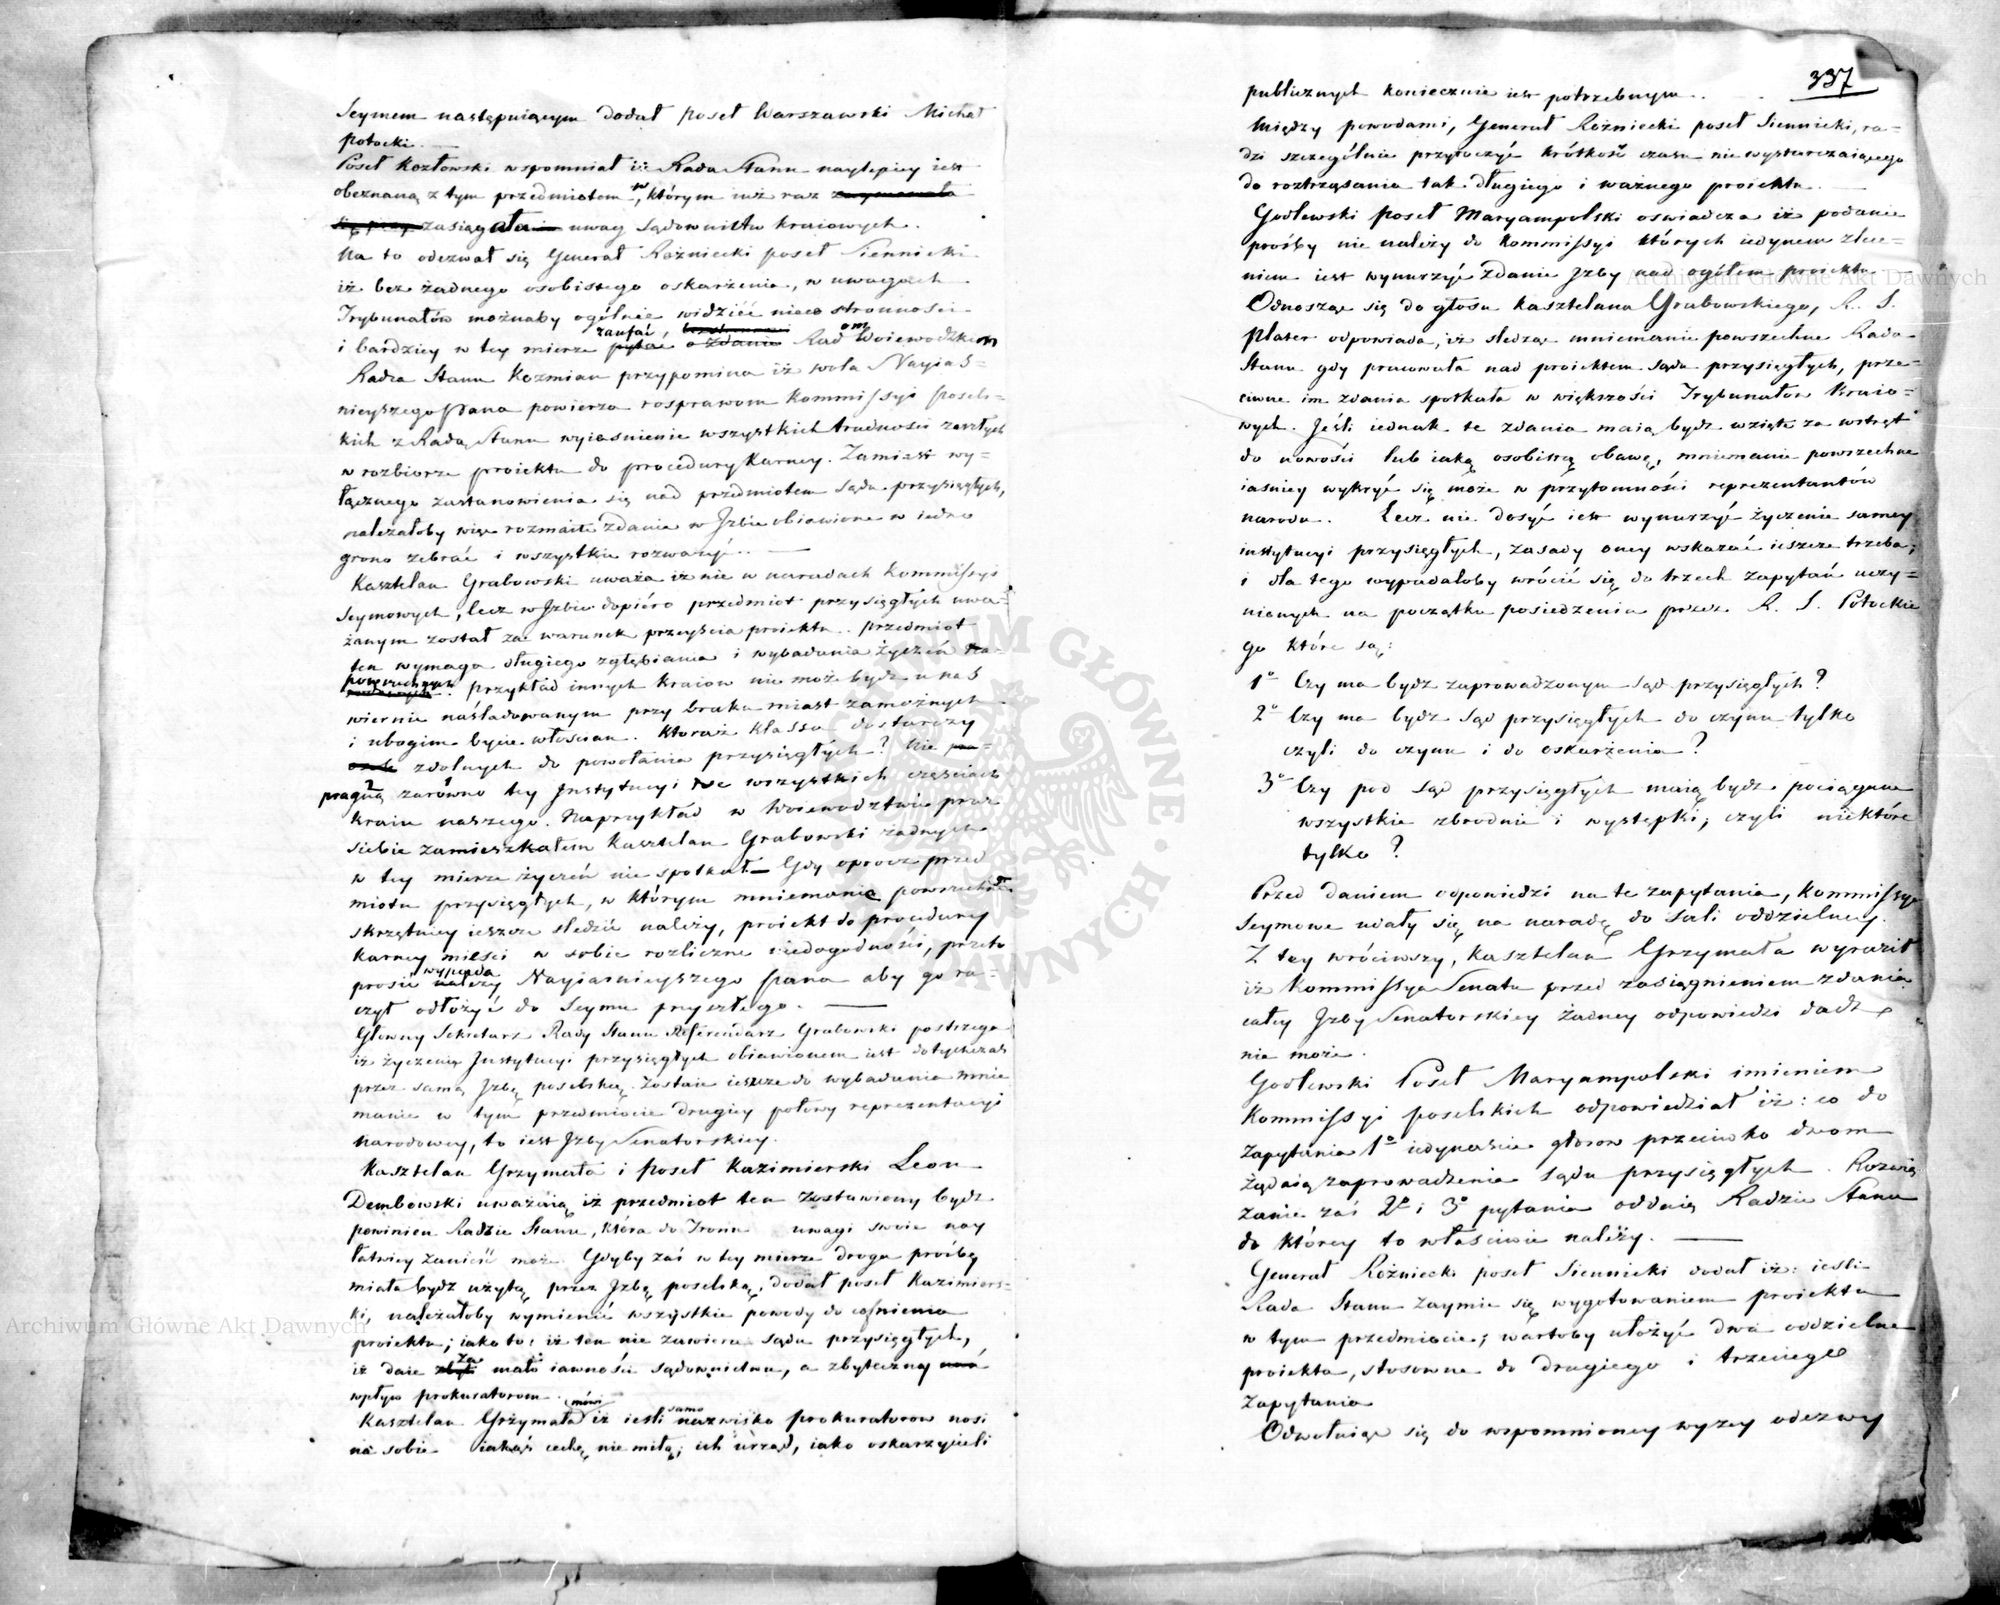 Seymem następuiącym dodał poseł Warszawski Michał
Potocki.
Poseł Kozłowski wspomniał iż Rada Stanu naylepiey iest
obeznaną z tym przedmiotem, w którym iuż raz
zasięgała uwag Sądownictw kraiowych.
Na to odezwał się Generał Rożniecki poseł Siennicki
iż bez żadnego osobistego oskarżenia, w uwagach
Trybunałów możnaby ogólnie widzieć nieco stronności
i bardziey w tey mierze zaufać Radom Woiewodzkim
Radca Stanu Kozmian przypomina iż wola Nayias=
nieyszego Pana powierza rosprawom Kommissyi Posels=
kich z Radą Stanu wyiasnienie wszystkich trudności zaszłych
w rozbiorze proiektu do procedury Karney. Zamiast wy=
łącznego zastanowienia się nad przedmiotem sądu przysięgłych,
należałoby więc rozmaite zdania w Izbie obiawione w iedno
grono zebrać i wszystkie rozważyć. —
Kasztelan Grabowski uważa iż nie w naradach Kommissyi
Seymowych, lecz w Izbie dopiéro przedmiot przysięgłych uwa=
żanym został za warunek przeyścia proiektu. Przedmiot
ten wymaga długiego zgłębiania i wybadania życzeń
powszechnych. Przykład innych kraiow nie może bydź u nas
wiernie naśladowanym przy braku miast zamożnych
i ubogim bycie włoscian. Któraż klassa dostarczy
zdolnych do powołania przysięgłych? Nie
pragną zarówno tey Instytucyi we wszystkich częściach
kraiu naszego. Naprzykład w Woiewodztwie przez
siebie zamieszkałem Kasztelan Grabowski żadnych
w tey mierze życzeń nie spotkał — Gdy oprocz przed
miotu przysięgłych, w którym mniemania powszechne
skrzętniey ieszcze sledzić należy, proiekt do procedury
Karney miesci w sobie rozliczne niedogodności, przeto
prosić wypada Nayiasnieyszego Pana aby go ra=
czył odłożyć do Seymu przyszłego. —
Głowny Sekretarz Rady Stanu Referendarz Grabowski postrzega
iż życzenie Instytucyi przysięgłych obiawionem iest dotychczas
przez samą Izbę poselską. Zostaie ieszcze do wybadania mnie
manie w tym przedmiocie drugiey połowy reprezentacyi
Narodowey, to iest Izby Senatorskiey.
Kasztelan Grzymała i Poseł Kazimierski Leon
Dembowski uważaią iż przedmiot ten zostawiony bydz
powinien Radzie Stanu, która do Tronu uwagi swoie nay
łatwiey zanieść może. Gdyby zaś w tey mierze droga próśby
miała bydz użytą przez Izbę poselską, dodał poseł Kazimiers=
ki, należałoby wymienić wszystkie powody do cofnienia
proiektu; iako to: iż ten nie zawiera sądu przysięgłych,
iż daie za mało iawności sądownictwu, a zbyteczny
wpływ prokuratorom.
Kasztelan Grzymała mówi iż iesli samo nazwisko prokuratorow nosi
na sobie iakąś cechę nie miłą; ich urząd, iako oskarzycieli
337
publicznych koniecznie iest potrzebnym.
Między powodami, Generał Rożniecki poseł Siennicki, ra=
dzi szczególnie przytoczyć krótkość czasu nie wystarczaiącego
do roztrząsania tak długiego i ważnego proiektu. —
Godlewski Poseł Maryampolski oswiadcza iż podanie
prośby nie należy do Kommissyi których iedynem zlece=
niem iest wynurzyć zdanie Izby nad ogółem proiektu
Odnosząc się do głosu Kasztelana Grabowskiego, R. S.
Plater odpowiada, iż sledząc mniemanie powszechne Rada
Stanu gdy pracowała nad proiektem sądu przysięgłych, prze=
ciwne im zdania spotkała w większości Trybunałow Kraio=
wych. Jeśli iednak te zdania maią bydź wzięte za wstręt
do nowości lub iaką osobistą obawę, mniemanie powszechne
iaśniey wykryć się może w przytomności reprezentantów
narodu. Lecz nie dosyć iest wynurzyć życzenie samey
instytucyi przysięgłych, zasady oney wskazać ieszcze trzeba;
i dla tego wypadałoby wrócić się do trzech zapytań uczy=
nionych na początku posiedzenia przez R. S. Potockie
go które są:
1o Czy ma bydź zaprowadzonym sąd przysięgłych?
2o Czy ma bydź sąd przysięgłych do czynu tylko
czyli do czynu i do oskarżenia?
3o Czy pod sąd przysięgłych maią bydź pociągane
wszystkie zbrodnie i występki, czyli niektóre
tylko?
Przed daniem odpowiedzi na te zapytania, Kommissye
Seymowe udały się na naradę do Sali oddzielney.
Z tey wróciwszy, Kasztelan Grzymała wyraził
iż Kommissya Senatu przed zasiągnieniem zdania
całey Izby Senatorskiey żadney odpowiedzi dadź
nie może.
Godlewski Poseł Maryampolski imieniem
Kommissyi poselskich odpowiedział iż: co do
zapytania 1o iedynascie głosow przeciwko dwom
żądaią zaprowadzenia sądu przysięgłych. Rozwią
zanie zaś 2o i 3o pytania oddaią Radzie Stanu
do którey to właściwie należy. —
Generał Rożniecki poseł Siennicki dodał iż: iesli
Rada Stanu zaymie się wygotowaniem proiektu
w tym przedmiocie; wartoby ułożyć dwa oddzielne
proiekta, stosowne do drugiego i trzeciego
zapytania
Odwołuiąc się do wspomnioney wyzey odezwy
Archiwum Główne Akt Dawnych